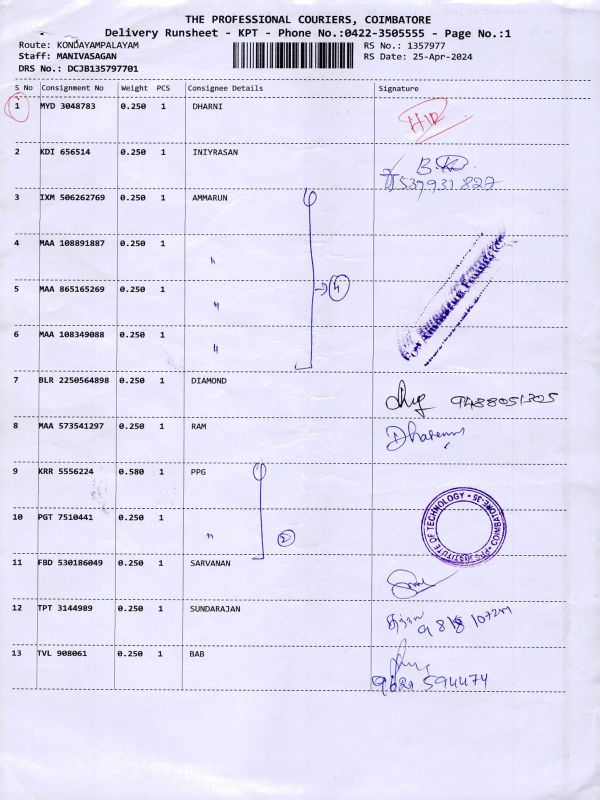 THE PROFESSIONAL COURIERS, COIMBATORE
Delivery Runsheet - KPT - Phone No.:0422-3505555 - Page No.:1
Route: KONDAYAMPALAYAM RS No.: 1357977
Staff: MANIVASAGAN RS Date: 25-Apr-2024
DRS No.: DCJB135797701
S No Consignment No Weight PCS Consignee Details Signature
1 MYD 3048783 0.250 1 DHARNI
2 KDI 656514 0.250 1 INIYRASAN
3 IXM 506262769 0.250 1 AMMARUN
4 MAA 108891887 0.250 1 "
5 MAA 865165269 0.250 1 " 4
6 MAA 108349088 0.250 1 "
7 BLR 2250564898 0.250 1 DIAMOND 9488051305
8 MAA 573541297 0.250 1 RAM
9 KRR 5556224 0.580 1 PPG
10 PGT 7510441 0.250 1 " 2
INSTITUTE OF TECHNOLOGY COIMBATORE-35
11 FBD 530186049 0.250 1 SARVANAN
12 TPT 3144989 0.250 1 SUNDARAJAN
13 TVL 908061 0.250 1 BAB
9629 594474